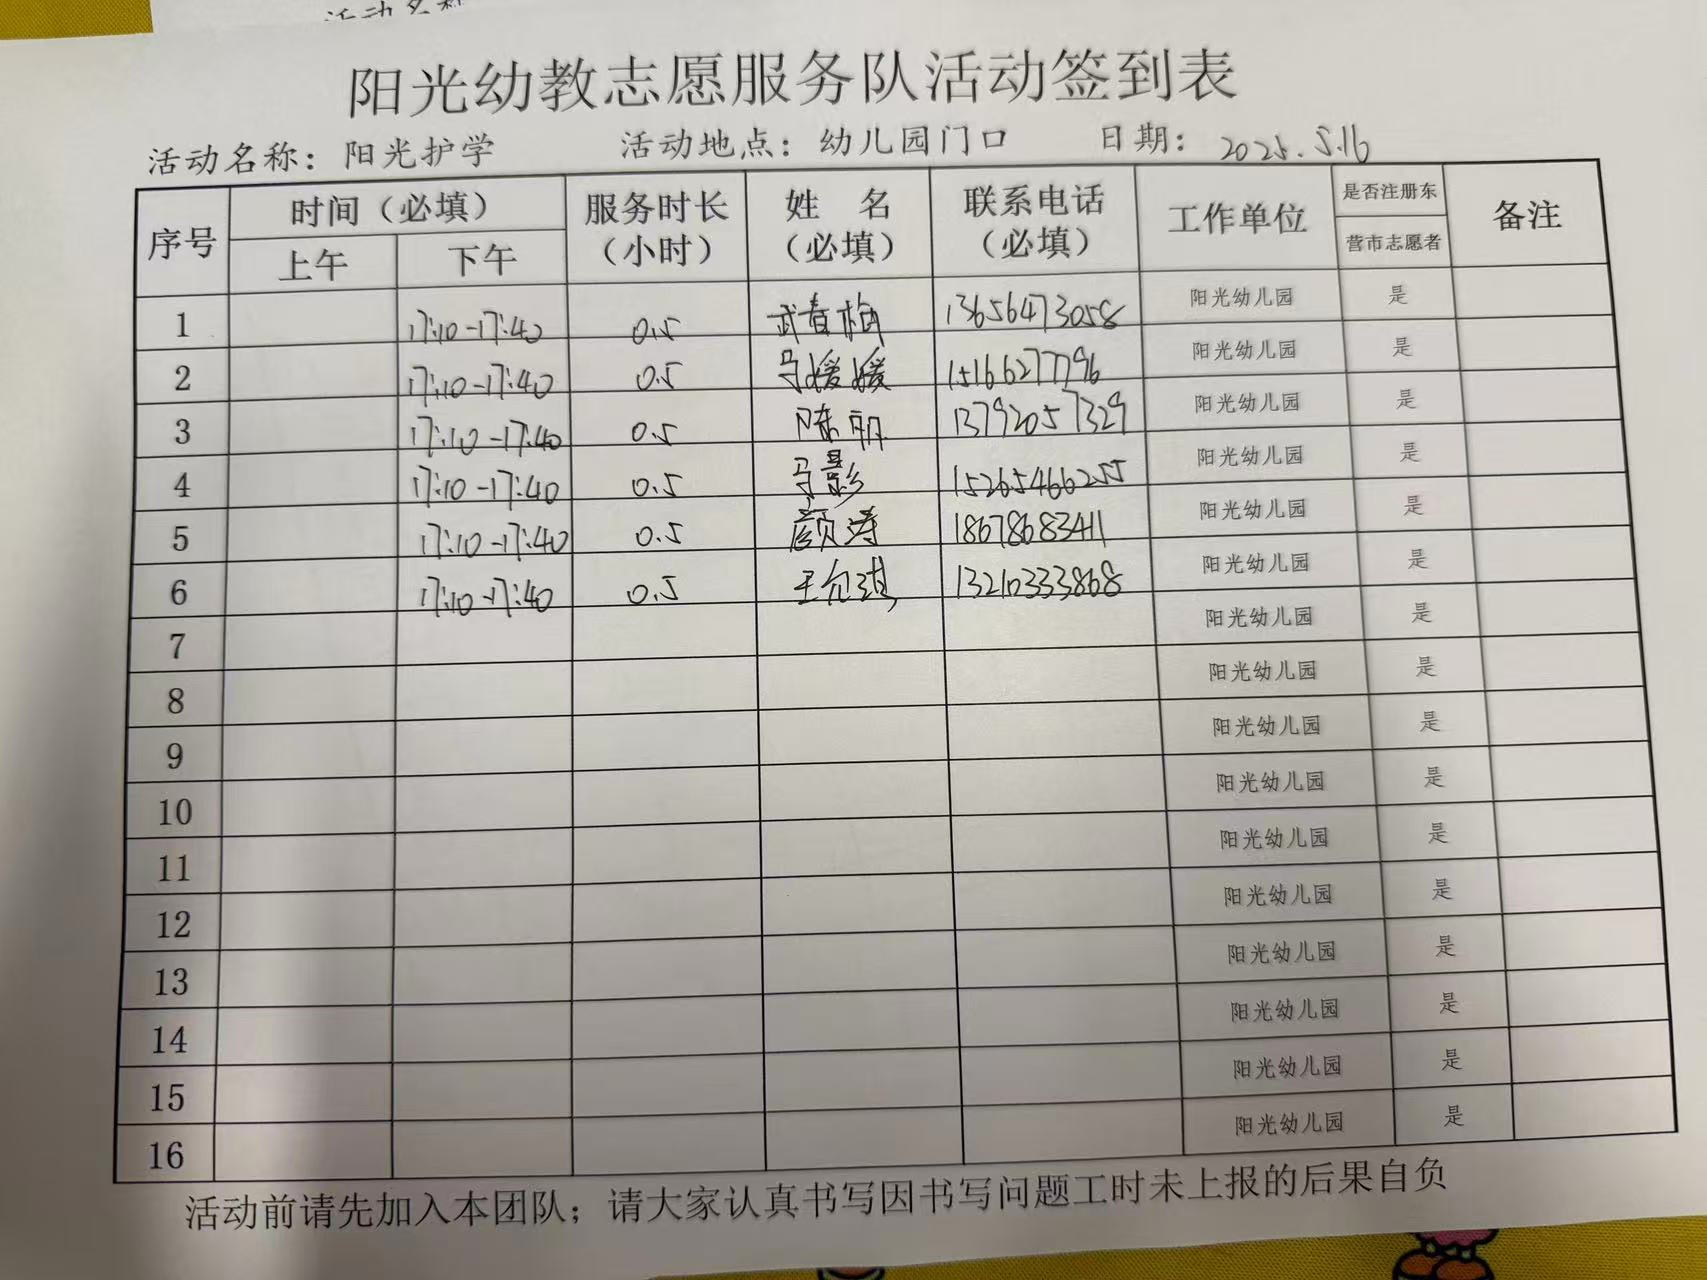 活动名称
阳光幼教志愿服务队活动签到表
活动名称：阳光护学 活动地点：幼儿园门口 日期：2025.5.16
序号 时间（必填） 上午 下午 服务时长（小时） 姓 名（必填） 联系电话（必填） 工作单位 是否注册东营市志愿者 备注
1 17:10-17:40 0.5 武春梅 13656473058 阳光幼儿园 是
2 17:10-17:40 0.5 马媛媛 15166277796 阳光幼儿园 是
3 17:10-17:40 0.5 陈丽 13792057329 阳光幼儿园 是
4 17:10-17:40 0.5 马影 15265466255 阳光幼儿园 是
5 17:10-17:40 0.5 颜涛 18678683411 阳光幼儿园 是
6 17:10-17:40 0.5 王允琪 13210333868 阳光幼儿园 是
7 阳光幼儿园 是
8 阳光幼儿园 是
9 阳光幼儿园 是
10 阳光幼儿园 是
11 阳光幼儿园 是
12 阳光幼儿园 是
13 阳光幼儿园 是
14 阳光幼儿园 是
15 阳光幼儿园 是
16 阳光幼儿园 是
活动前请先加入本团队；请大家认真书写因书写问题工时未上报的后果自负